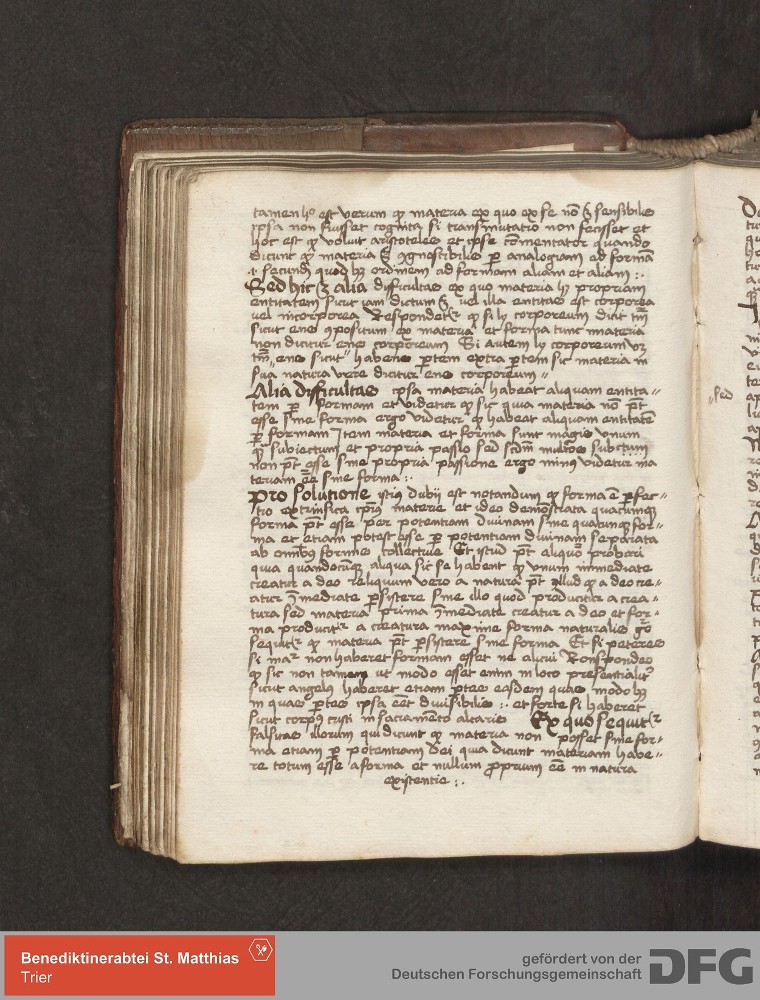 tamen hoc est verum qꝫ materia ex quo ex se nō ē sensibilis
ipsa non fuisset cognita si transmutatio non fecisset et
hoc est qꝫ voluit aristoteles et ipse cōmentator quando
dicunt qꝫ materia ē ꝯgnoscibilis ꝑ analogiam ad formā
.i. secundū quod hꝫ ordinem ad formam aliam et aliam :.
Sed hic ē alia difficultas ex quo materia hꝫ propriam
entitatem sicut iam dictum ē vel illa entitas est corporea
vel incorporea Respondetur qꝫ si ly corporeum dicit tm̄
sicut ens ꝯpositum ex materia et forma tunc materia
non dicitur ens corporeum Si autem ly corporeum
tm̄ ens sicut habens ꝑtem extra ꝑtem sic materia in
sua natura vere dicitur ens corporeum
Alia difficultas ipsa materia habeat aliquam entita
tem ꝑ formam et videtur qꝫ sic quia materia nō pt̄
esse sine forma ergo videtur qꝫ habeat aliquam entitatē
ꝑ formam Item materia et forma sunt magis vnum
qꝫ subiectum et propria passio sed subiectum
non pt̄ esse sine propria passione ergo minus videtur ma
teriam eē sine forma :.
Pro solutione istius dubii est notandum qꝫ forma ē ꝑfec
tio extrinsica materie et ideo demostrata quacumqꝫ
forma pt̄ esse per potentiam diuinam sine quacunqꝫ for
ma et etiam potest esse ꝑ potentiam diuinam separata
ab omībus formis collectiue Et istud pt̄ aliquo probari
quia quandocūqꝫ aliqua sic se habent qꝫ vnum immediate
creatur a deo reliquum vero a natura pt̄ illud qꝫ a deo cre
atur īmediate ꝑsistere sine illo quod producitur a crea
tura sed materia prima īmediate creatur a deo et for
ma producitur a creatura maxime forma naturalis
sequitur qꝫ materia pt̄ ꝑsistere sine forma Et si peteres
si ma non haberet formam esset ne alicui Respondeo
qꝫ sic non tamen ut modo esset enim in loco presentialiter
sicut angelus haberet etiam ꝑtes easdem quas modo hꝫ
in quas ꝑtes ipsa eēt diuisibilis :. et forte si haberet
sicut corpus cristi in sacramēto altaris Ex quo sequitur
falsitas illorum qui dicunt qꝫ materia non posset sine for
ma etiam ꝑ potentiam dei quia dicunt materiam habe
re totum esse a forma et nullum proprium eē in natura
existentie :.
sed
Benediktinerabtei St. Matthias
Trier
gefördert von der
Deutschen Forschungsgemeinschaft
DFG